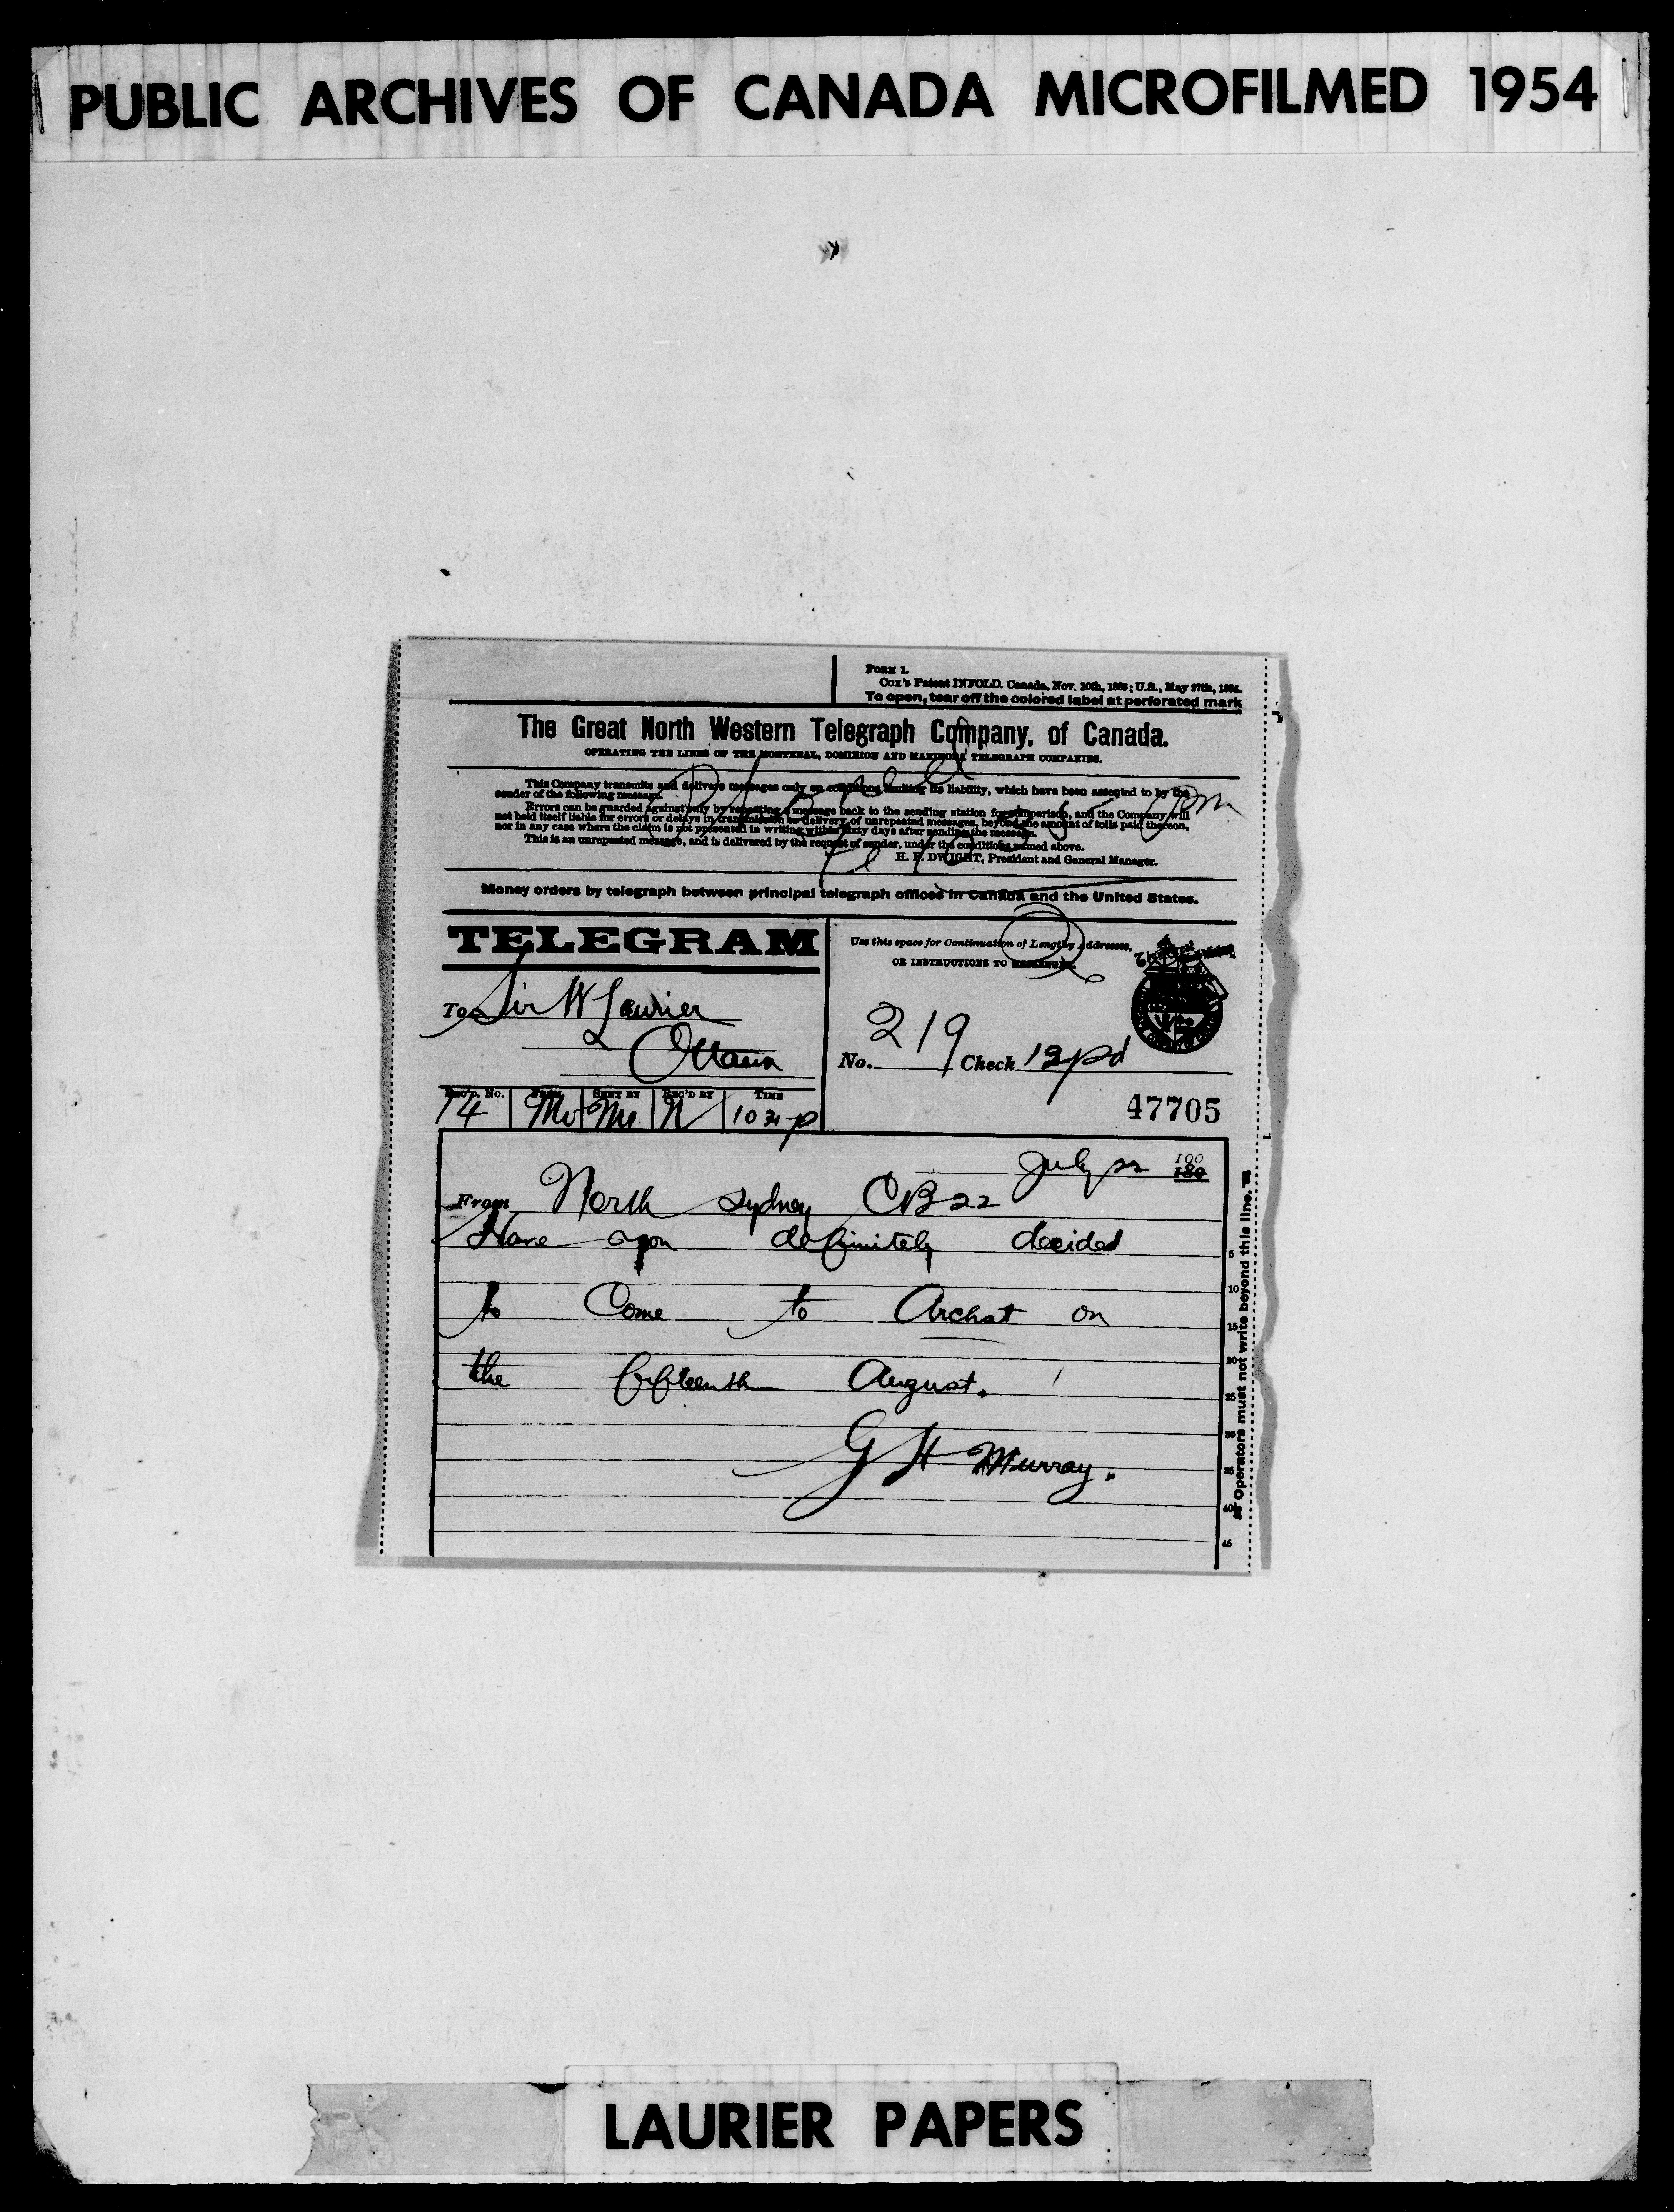 PUBLIC ARCHIVES OF CANADA MICROFILMED 1954
FORM 1.
Cox's Patent INFOLD. Canada, Nov. 10th, 1883; U.S., May 27th, 1884.
To open, tear off the colored label at perforated mark
The Great North Western Telegraph Company, of Canada.
OPERATING THE LINES OF THE MONTREAL, DOMINION AND MANITOBA TELEGRAPH COMPANIES.
This Company transmits and delivers messages only on conditions limiting its liability, which have been assented to by the
sender of the following message.
Errors can be guarded against only by repeating a message back to the sending station for comparison, and the Company will
not hold itself liable for errors or delays in transmission or delivery of unrepeated messages, beyond the amount of tolls paid thereon,
nor in any case where the claim is not presented in writing within sixty days after sending the message.
This is an unrepeated message, and is delivered by the request of sender, under the conditions named above.
H. P. DWIGHT, President and General Manager.
Money orders by telegraph between principal telegraph offices in Canada and the United States.
TELEGRAM
Use this space for Continuation of Lengthy Addresses,
OR INSTRUCTIONS TO MESSENGER.
To Sir W Laurier
Ottawa
No. 219 Check 12pd
REC'D. No. FROM SENT BY REC'D BY TIME
74 Mo Me N
47705
July 22 190
From North Sydney CB 22
Have you definitely decided
to Come to Archat on
the fifteenth August.
G H Murray.
5
10
15
20
25
30
35
40
45
Operators must not write beyond this line.
LAURIER PAPERS